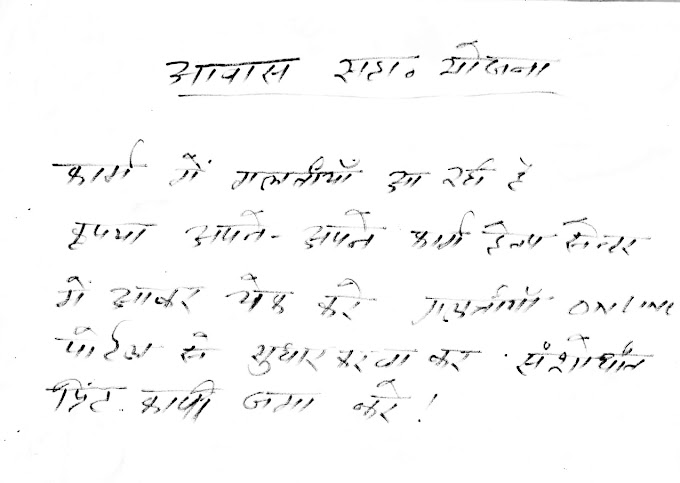 आवास सहा॰ योजना
फार्म में गलतीयाँ आ रही है
कृपया अपने-अपने फार्म हेल्प सेन्टर
में आकर चेक करे गलतीयाँ ONLINE
पोर्टल से सुधार करवा कर संशोधीत
प्रिंट कापी जमा करे!